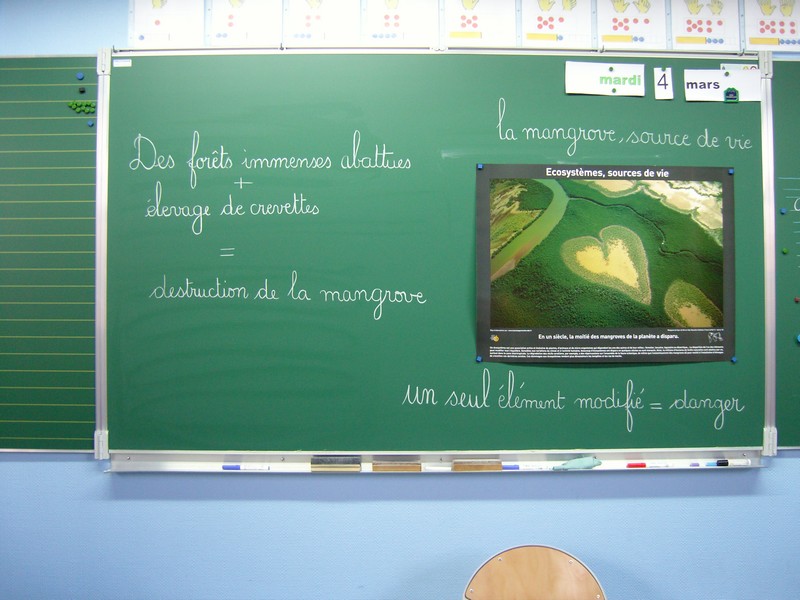 mardi 4 mars
la mangrove, source de vie
Des forêts immenses abattues
+
élevage de crevettes
=
destruction de la mangrove
Ecosystèmes, sources de vie
En un siècle, la moitié des mangroves de la planète a disparu.
un seul élément modifié = danger